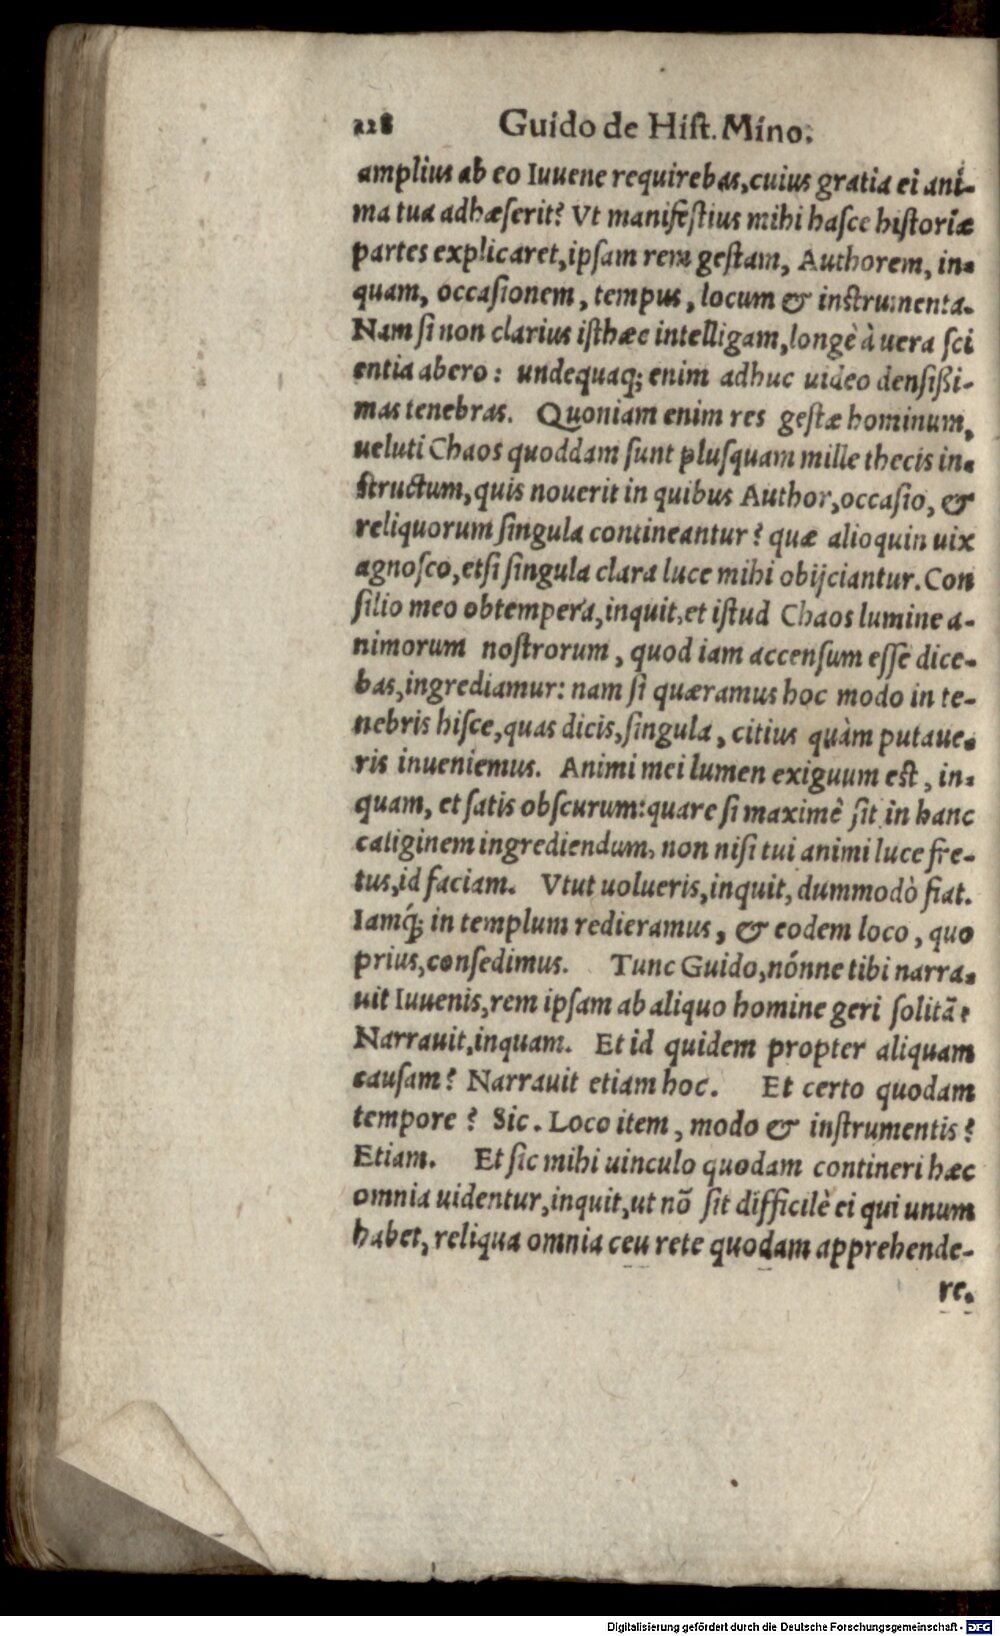 228 Guido de Hist. Mino.
amplius ab eo Iuuene requirebas, cuius gratia ei ani-
ma tua adhæserit? Vt manifestius mihi hasce historiæ
partes explicaret, ipsam rem gestam, Authorem, in-
quam, occasionem, tempus, locum & instrumenta.
Nam si non clarius isthæc intelligam, longè à uera sci
entia abero: undequaq; enim adhuc uideo densißi-
mas tenebras. Quoniam enim res gestæ hominum,
ueluti Chaos quoddam sunt plusquam mille thecis in-
structum, quis nouerit in quibus Author, occasio, &
reliquorum singula contineantur? quæ alioquin uix
agnosco, etsi singula clara luce mihi obijciantur. Con
silio meo obtempera, inquit, et istud Chaos lumine a-
nimorum nostrorum, quod iam accensum esse dice-
bas, ingrediamur: nam si quæramus hoc modo in te-
nebris hisce, quas dicis, singula, citius quàm putaue-
ris inueniemus. Animi mei lumen exiguum est, in-
quam, et satis obscurum: quare si maximè sit in hanc
caliginem ingrediendum, non nisi tui animi luce fre-
tus, id faciam. Vtut uolueris, inquit, dummodò fiat.
Iamq́; in templum redieramus, & eodem loco, quo
prius, consedimus. Tunc Guido, nónne tibi narra-
uit Iuuenis, rem ipsam ab aliquo homine geri solitã?
Narrauit, inquam. Et id quidem propter aliquam
causam? Narrauit etiam hoc. Et certo quodam
tempore? Sic. Loco item, modo & instrumentis?
Etiam. Et sic mihi uinculo quodam contineri hæc
omnia uidentur, inquit, ut nõ sit difficilè ei qui unum
habet, reliqua omnia ceu rete quodam apprehende-
re.
Digitalisierung gefördert durch die Deutsche Forschungsgemeinschaft - DFG